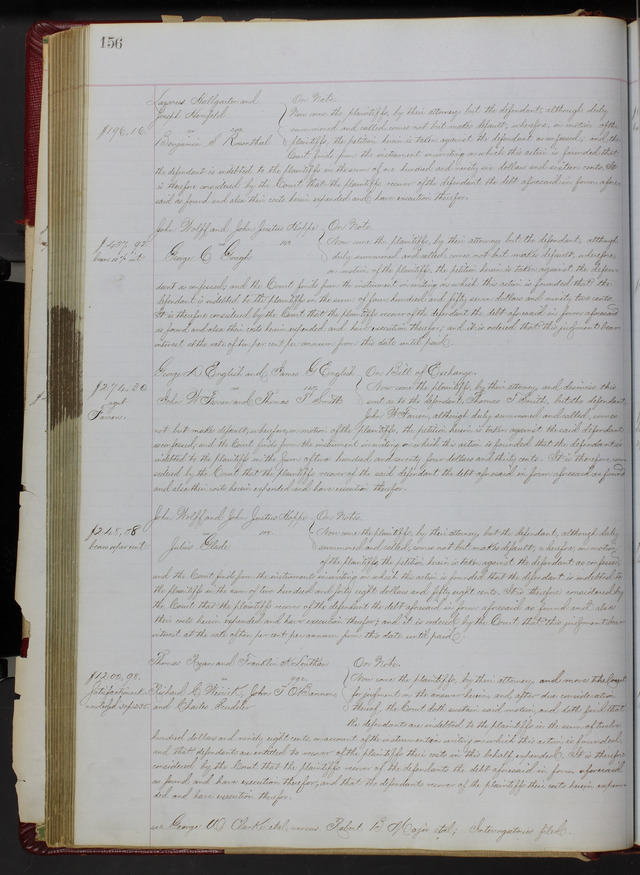 156
Lazarus Hallgarten and
Joseph Hernfeld
vs
$196.16
Benjamin S Rosenthal
On Note.
Now come the plaintiffs, by their attorney but the defendant, although duly
summoned and called, comes not but makes default, wherefore, on motion of the
plaintiffs, the petition herein is taken against the defendant as confessed, and the
Court finds from the instrument in writing on which this action is founded, that
the defendant is indebted to the plaintiffs in the sum of one hundred and ninety six dollars and sixteen cents. It
is therefore considered by the Court that the plaintiffs recover of the defendant the debt aforesaid in form afore-
said as found and also their costs herein expended and have execution therefor.
John Wolff and John Justus Hoppe
vs
$457.92
bears 10% int.
George C Gough
On Note.
Now come the plaintiffs, by their attorney, but the defendant, although
duly summoned and called, comes not but makes default, wherefore,
on motion of the plaintiffs, the petition herein is taken against the defen-
dant as confessed; and the Court finds from the instrument in writing on which this action is founded that the
defendant is indebted to the plaintiffs in the sum of four hundred and fifty seven dollars and ninety two cents.
It is therefore considered by the Court that the plaintiffs recover of the defendant the debt aforesaid in form aforesaid
as found and also their costs herein expended and have execution therefor; and it is ordered that this judgment bear
interest at the rate of ten per cent per annum from this date until paid.
George A English and James G English
vs
$274.30
agst
Farson
John W Farson and Thomas T Smith
On Bill of Exchange.
Now come the plaintiffs, by their attorney and dismiss this
suit as to the defendant, Thomas T Smith, but the defendant
John W Farson, although duly summoned and called, comes
not but makes default; wherefore, on motion of the plaintiffs, the petition herein is taken against the said defendant
as confessed, and the Court finds from the instrument in writing on which this action is founded that the defendant is
indebted to the plaintiffs in the sum of two hundred and seventy four dollars and thirty cents. It is therefore con-
sidered by the Court that the plaintiffs recover of the said defendant the debt aforesaid in form aforesaid as found
and also their costs herein expended and have execution therefor.
John Wolff and John Justus Hoppe
vs
$248.58
bears 10 per cent
Julius Glade
On Note.
Now come the plaintiffs, by their attorney but the defendant, although duly
summoned and called, comes not but makes default; wherefore, on motion
of the plaintiffs, the petition herein is taken against the defendant as confessed
and the Court finds from the instrument in writing on which this action is founded that the defendant is indebted to
the plaintiffs in the sum of two hundred and forty eight dollars and fifty eight cents. It is therefore considered by
the Court that the plaintiffs recover of the defendant the debt aforesaid in form aforesaid as found and also
their costs herein expended and have execution therefor; and it is ordered by the Court that this judgment bear
interest at the rate of ten per cent per annum from this date until paid.
Thomas Ryan and Franklin
vs
$1200.98.
Satisfaction ack
Richard C, John T O'Bannon
and Charles Heudler
On Note.
Now come the plaintiffs, by their attorney, and move the Court
for judgment on the answer herein and after due consideration
thereof, the Court doth sustain said motion, and doth find that
the defendants are indebted to the plaintiffs in the sum of twelve
hundred dollars and ninety eight cents on account of the instrument in writing on which this action is founded
and that defendants are entitled to recover of the plaintiffs their costs in this behalf expended. It is therefore
considered by the Court that the plaintiffs recover of the defendants the debt aforesaid in form aforesaid
as found and have execution therefor, and that the defendants recover of the plaintiffs their costs herein expen-
ded and have execution therefor.
George W Clark et al. versus Robert B Major et al; Interrogatories filed.